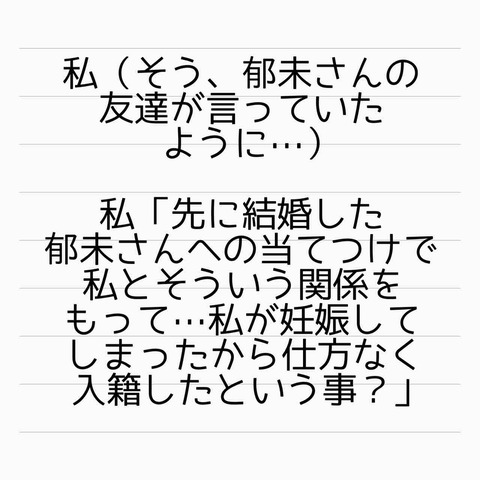 私（そう、郁未さんの
友達が言っていた
ように…）
私「先に結婚した
郁未さんへの当てつけで
私とそういう関係を
もって…私が妊娠して
しまったから仕方なく
入籍したという事？」